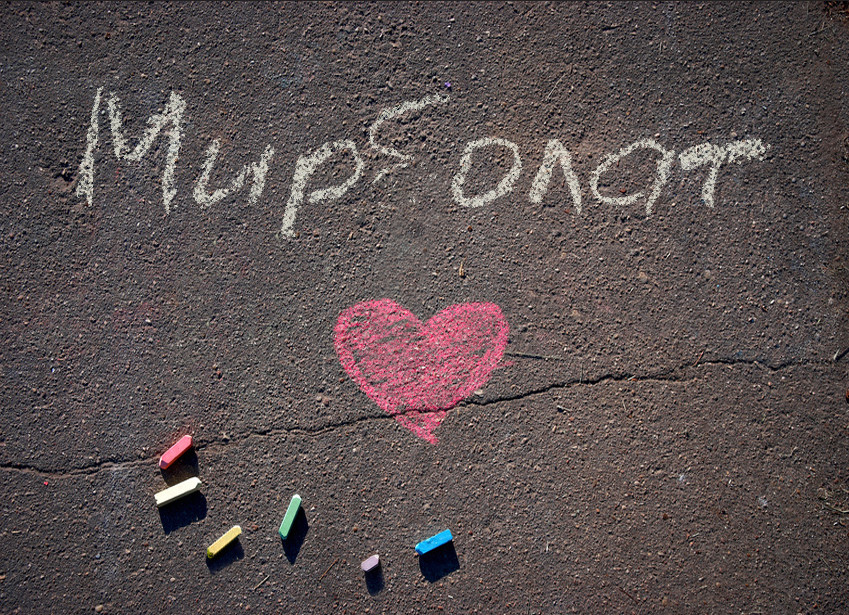 Мирболат